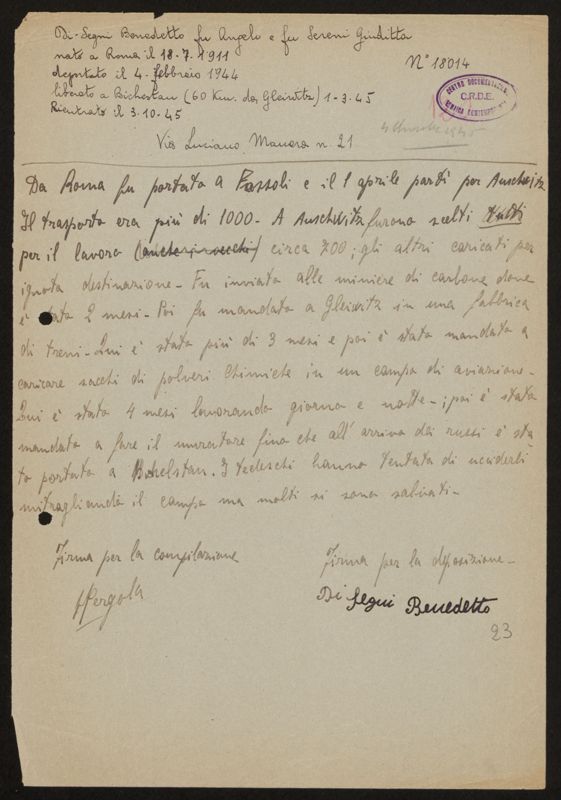 Di-Segni Benedetto fu Angelo e fu Sereni Giuditta
nato a Roma il 18-7-1911
N° 18014
deportato il 4-febbraio 1944
liberato a Bichestau (60 Km. da Gleiwitz) 1-3-45
Rientrato il 3.10-45
CENTRO DOCUMENTAZIONE
C.R.D.E.
EBRAICA CONTEMPORANEA
1945
Via Luciano Manara n. 21
Da Roma fu portato a Fossoli e il 1 aprile partì per Auschwitz
Il trasporto era più di 1000- A Auschwitz furono scelti tutti
per il lavoro (anche i vecchi) circa 700; gli altri caricati per
ignota destinazione- Fu inviato alle miniere di carbone dove
è stato 2 mesi- Poi fu mandato a Gleiwitz in una fabbrica
di treni- Qui è stato più di 3 mesi e poi è stato mandato a
caricare sacchi di polveri chimiche in un campo di aviazione-
Qui è stato 4 mesi lavorando giorno e notte-; poi è stato
mandato a fare il muratore fino che all'arrivo dei russi è sta
to portato a Bichelstau. I tedeschi hanno tentato di ucciderli
mitragliando il campo ma molti si sono salvati-
Firma per la compilazione
Firma per la deposizione-
Pergola
Di Segni Benedetto
23